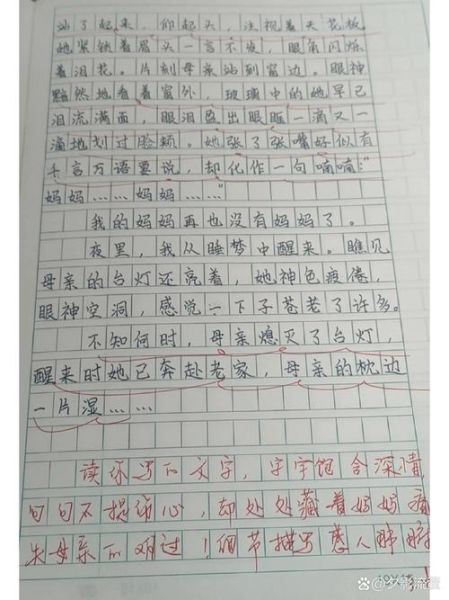 站了起来，仰起头，注视着天花板
她紧锁着眉头一言不发，眼角闪烁
着泪花。片刻母亲站到窗边。眼神
黯然地看着窗外，玻璃中的她早已
泪流满面，眼泪盈出眼眶一滴又一
滴地划过脸颊。她张了张嘴好似有
千言万语要说，却化作一句喃喃：“
妈妈……妈妈……”
我的妈妈再也没有妈妈了。
夜里，我从睡梦中醒来。瞧见
母亲的台灯还亮着，她神色疲倦，
眼神空洞，感觉一下子苍老了许多。
不知何时，母亲熄灭了台灯，
醒来时她已奔赴老家，母亲的枕边
一片湿……
读你写的文字，字字饱含深情，
句句不提伤心，却处处藏着妈妈痛
失母亲的难过！细节描写感人肺腑